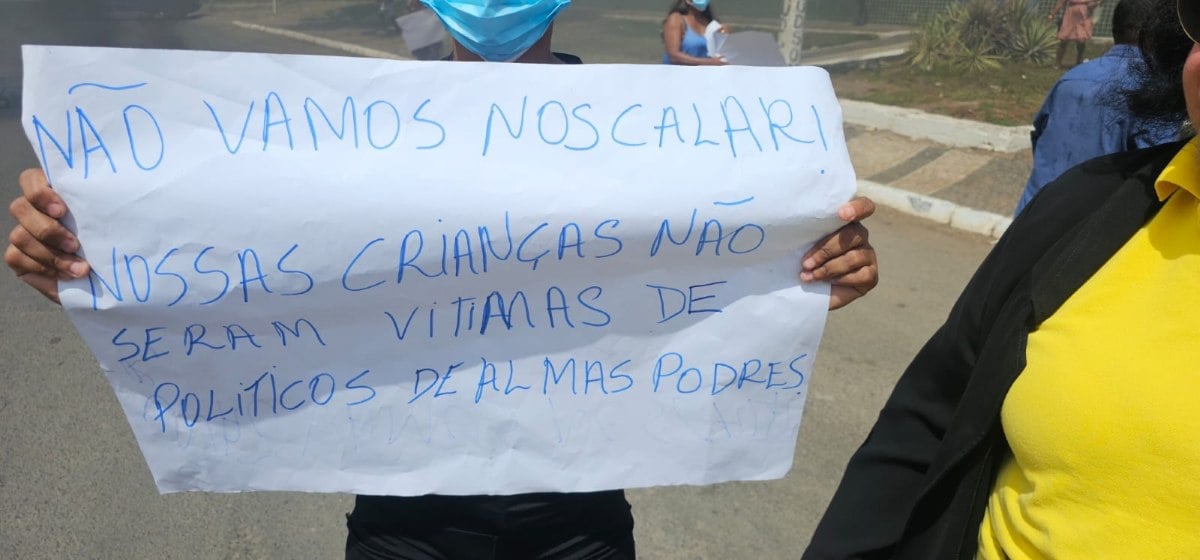 NÃO VAMOS NOS CALAR!
NOSSAS CRIANÇAS NÃO
SERAM VITIMAS DE
POLITICOS DE ALMAS PODRES